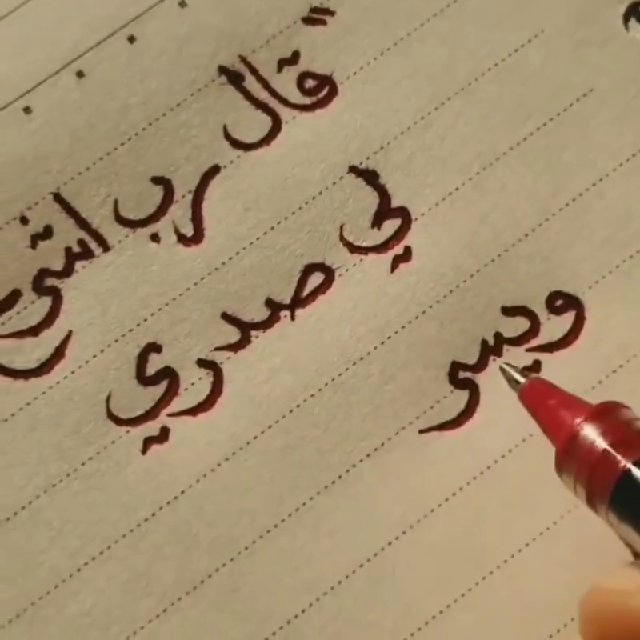 قال رب اشرح
لي صدري
ويسر